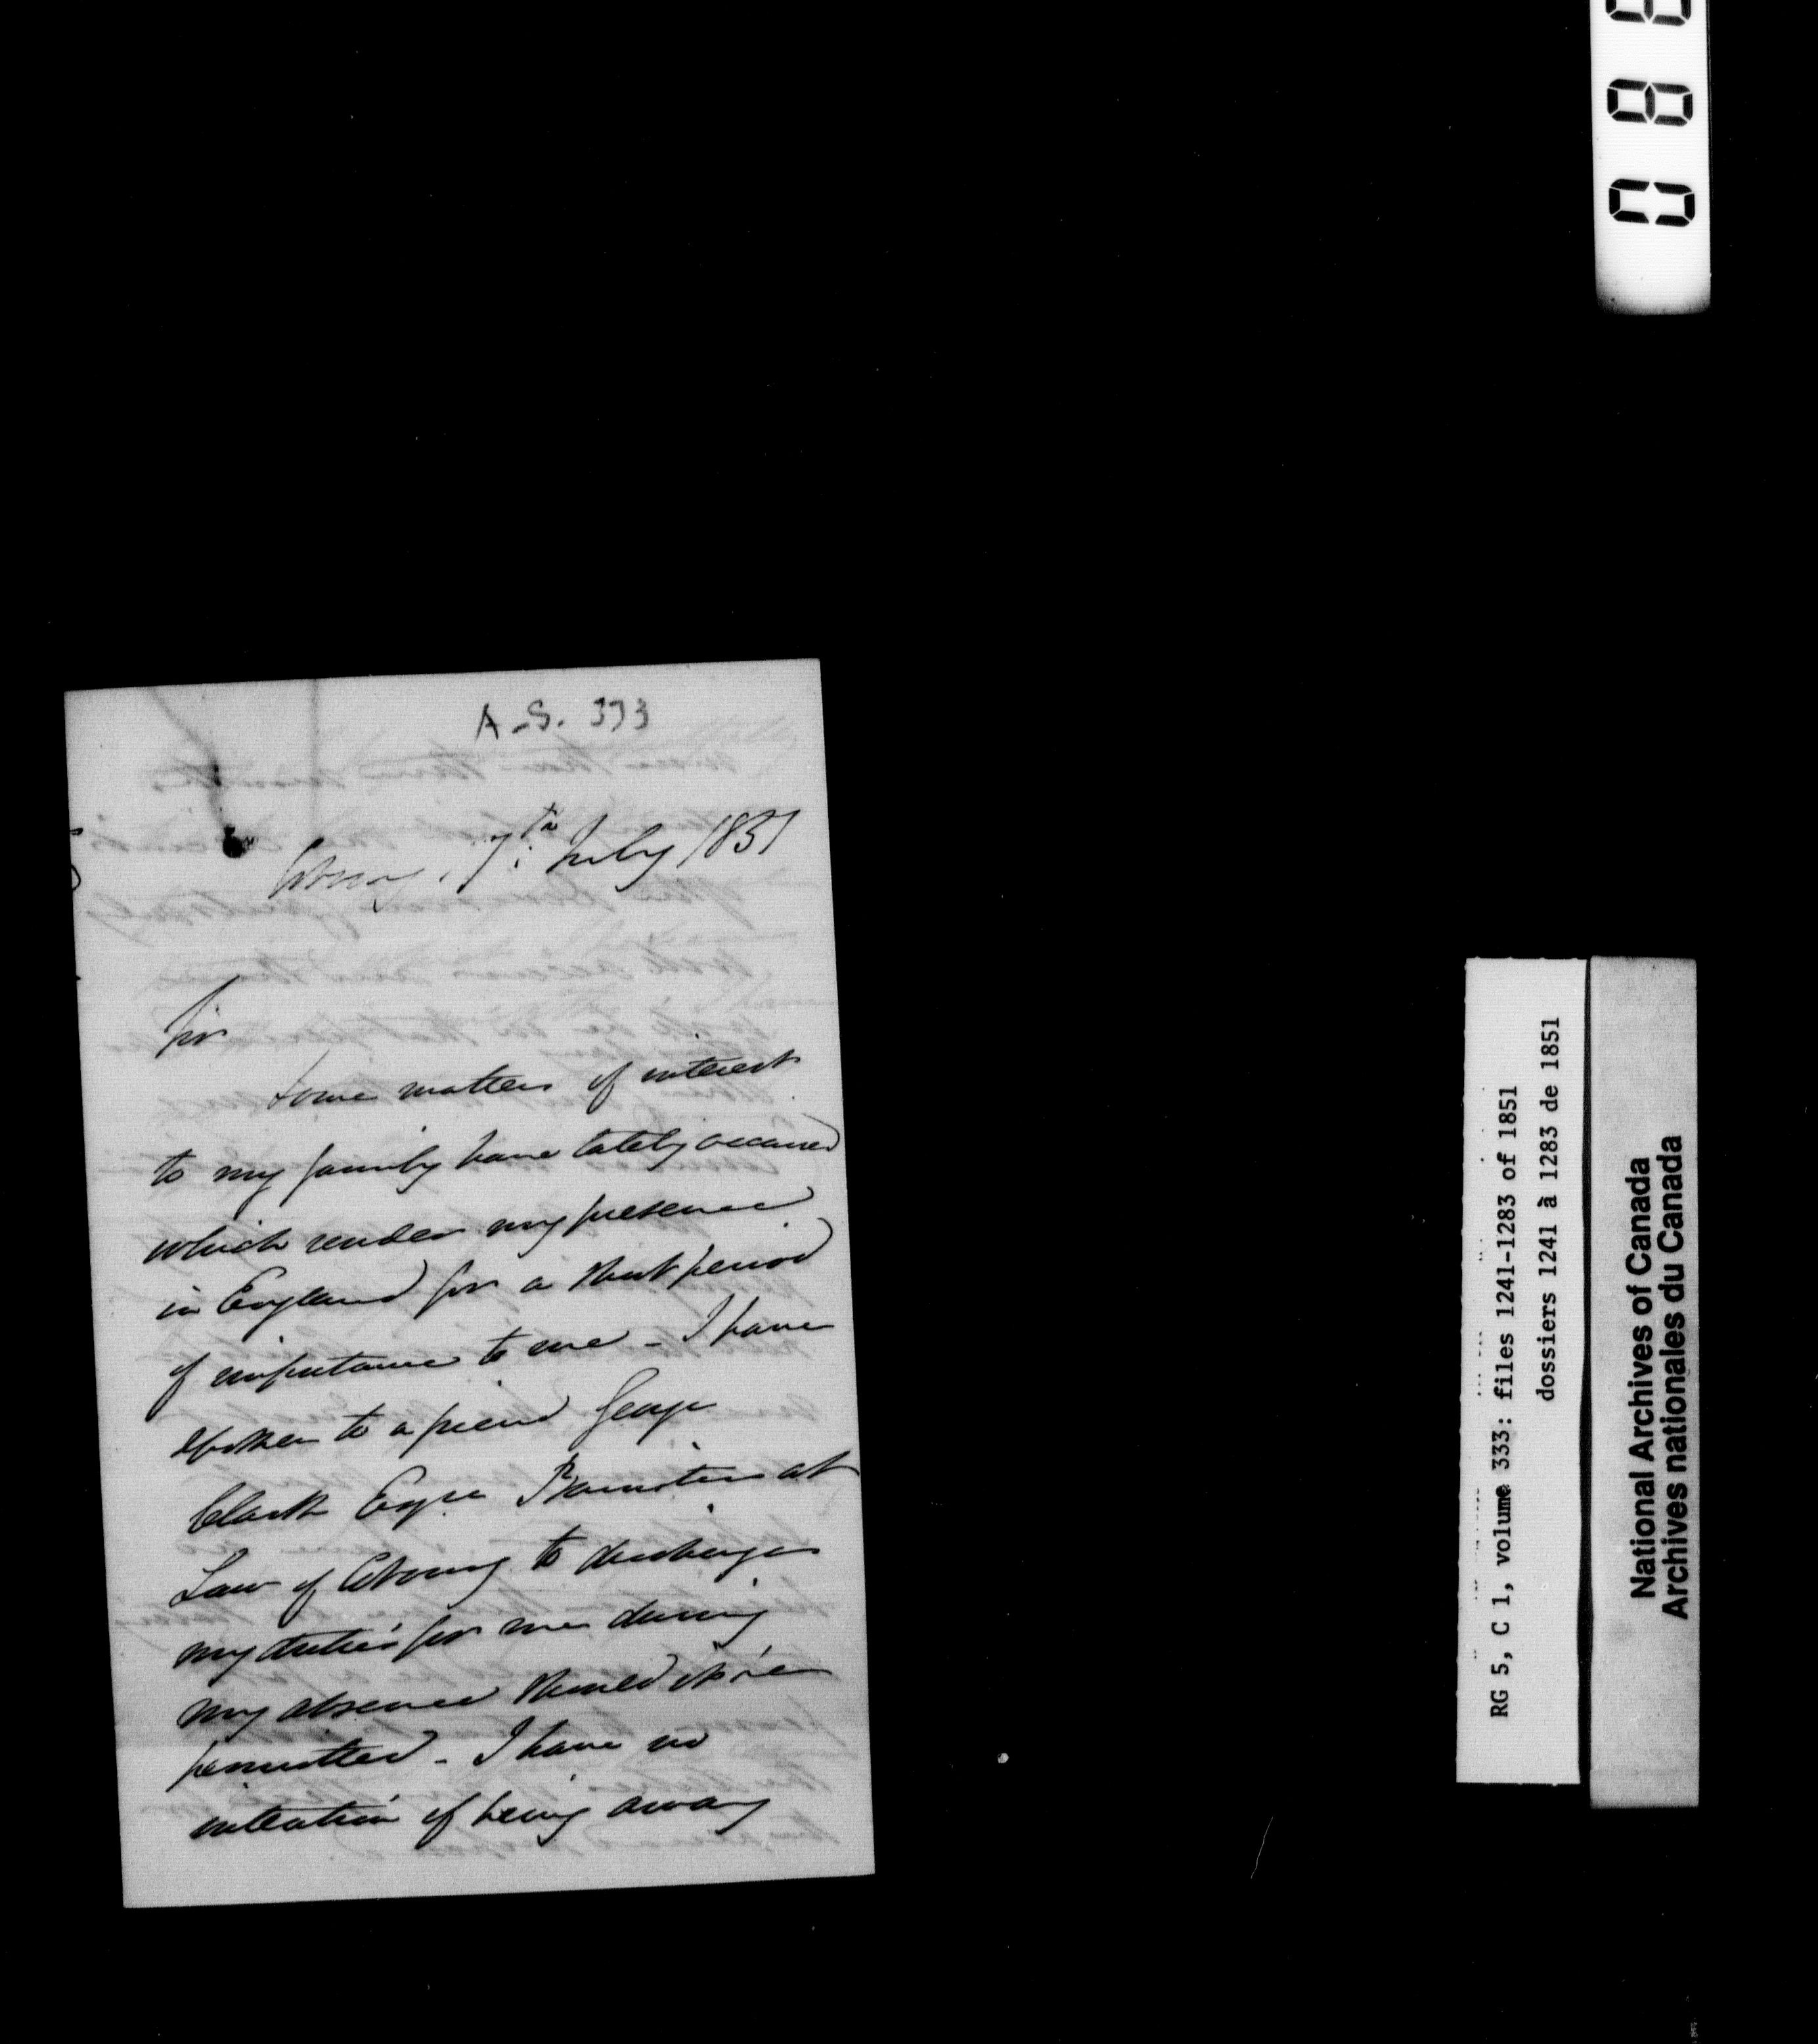 A-S. 333
Cobourg. 7th July 1851
Sir
Some matters of interest
to my family have lately occurred
which render my presence
in England for a short period
of importance to me - I have
spoken to a friend George
Clark Esqre Barrister at
Law of Cobourg to discharge
my duties for me during
my absence should it be
permitted - I have no
intention of being away
RG 5, C 1, volume 333: files 1241-1283 of 1851
dossiers 1241 à 1283 de 1851
National Archives of Canada
Archives nationales du Canada